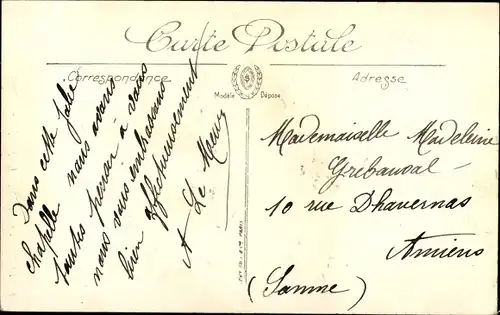 Carte Postale
Correspondance
Adresse
Modèle Déposé
Dans cette jolie
chapelle nous avons
toutes pensé à vous
nous vous embrassons
bien affectueusement
A Le
Mademoiselle Madeleine
Grébauval
10 rue Dhavernas
Amiens
(Somme)